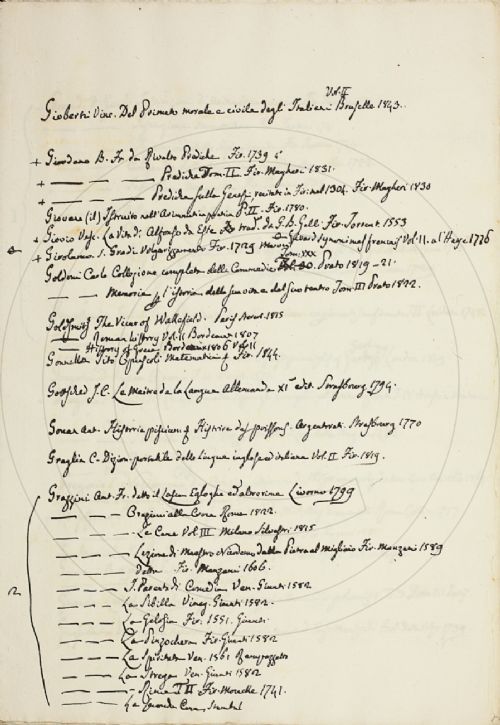 Vol. II
Gioberti Vinc. Del Primato morale e civile degli Italiani Bruselle 1843.
+ Giordano B. Fr. da Rivalto Prediche Fir. 1739 4°
+ — — — Prediche Tom. II Fir. Magheri 1831.
+ — — — Prediche sulla Genesi recitate in Firenze 1304. Fir. Magheri 1830
Giovane (il) Istruito nell'Aritmetica pratica P. II. Fir. 1780.
+ Giovio Vesc. La Vita di Alfonso da Este trad. da G. B. Gelli Fir. Torrent. 1553
Girard Synonimes français Vol. II. a l'Haye 1776
+ Girolamo S. Gradi Volgarizzamento Fir. 1729 Manni
Tom. XXX
Goldoni Carlo Collezione completa delle Commedie Prato 1819-21.
— — Memorie p. l'istoria della sua vita e del suo teatro Tom. III Prato 1822.
Goldsmith The Vicar of Wakefield. Paris 1815
— Roman history Vol. II Bordeaux 1807
— History of Greece Bordeaux 1806 Vol. II
Gonnella Tito Opuscoli Matematici Fir. 1844.
Gottsched J. C. Le Maitre de la Langue Allemande XIe edit. Strasbourg 1794.
Gouan Ant. Historia piscium Histoire des poissons Argentorati. Strasbourg 1770
Graglia C. Dizion. portatile delle lingue inglese ed italiana Vol. II Fir. 1819.
Grazzini Ant. Fr. detto il Lasca Egloghe ed altre rime Livorno 1799
— — Orazioni alla Croce Roma 1822.
— — — Le Cene Vol. III Milano Silvestri 1815
— — — Lezione di Maestro Niccodemo dalla Pietra al Migliaio Fir. Manzani 1589
— — — detta Fir. Manzani 1606.
2 — — — I Parentadi Comedia Ven. Giunti 1582
— — — La Sibilla Vineg. Giunti 1582.
— — — La Gelosia Fir. 1551. Giunti
— — — La Pinzochera Fir. Giunti 1582
— — — La Spiritata Ven. 1561 Rampazzetto
— — — La Strega Ven. Giunti 1582
— — — Rime T. II Fir. Moucke 1741.
— — — La Seconda Cena, Stambul